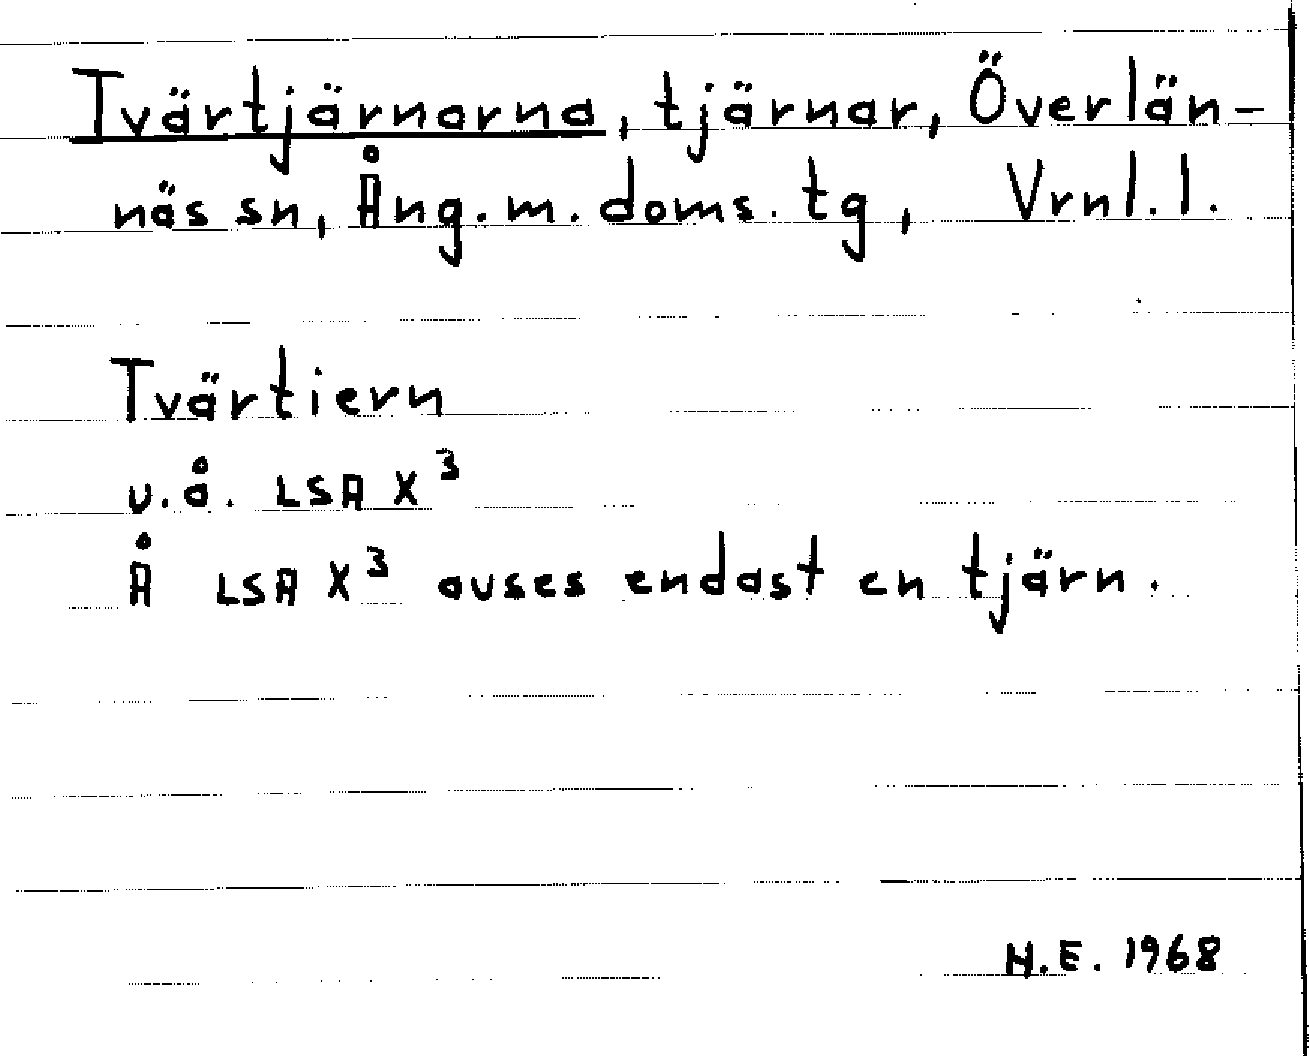 Tvärtjärnarna, tjärnar, Överlän-
näs sn, Ång. m. doms. tg, Vrnl. l.
Tvärtiern
u.å. LSA X³
Å LSA X³ avses endast en tjärn.
H.E. 1968